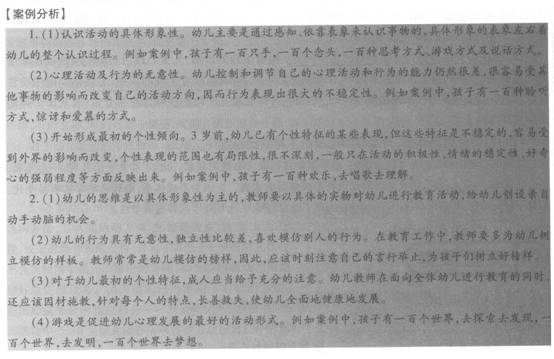 【案例分析】
1.(1)认识活动的具体形象性。幼儿主要是通过感知、依靠表象来认识事物的,具体形象的表象左右着
幼儿的整个认识过程。例如案例中,孩子有一百只手,一百个念头,一百种思考方式、游戏方式及说话方式。
(2)心理活动及行为的无意性。幼儿控制和调节自己的心理活动和行为的能力仍然很差,很容易受其
他事物的影响而改变自己的活动方向,因而行为表现出很大的不稳定性。例如案例中,孩子有一百种聆听
方式,惊讶和爱慕的方式。
(3)开始形成最初的个性倾向。3岁前,幼儿已有个性特征的某些表现,但这些特征是不稳定的,容易受
到外界的影响而改变,个性表现的范围也有局限性,很不深刻,一般只在活动的积极性、情绪的稳定性、好奇
心的强弱程度等方面反映出来。例如案例中,孩子有一百种欢乐,去唱歌去理解。
2.(1)幼儿的思维是以具体形象性为主的,教师要以具体的实物对幼儿进行教育活动,给幼儿创设亲自
动手动脑的机会。
(2)幼儿的行为具有无意性,独立性比较差,喜欢模仿别人的行为。在教育工作中,教师要多为幼儿树
立模仿的样板。教师常常是幼儿模仿的榜样,因此,应该时刻注意自己的言行举止,为孩子们树立好榜样。
(3)对于幼儿最初的个性特征,成人应当给予充分的注意。幼儿教师在面向全体幼儿进行教育的同时,
还应该因材施教,针对每个人的特点,长善救失,使幼儿全面地健康地发展。
(4)游戏是促进幼儿心理发展的最好的活动形式。例如案例中,孩子有一百个世界,去探索去发现,一
百个世界,去发明,一百个世界去梦想。